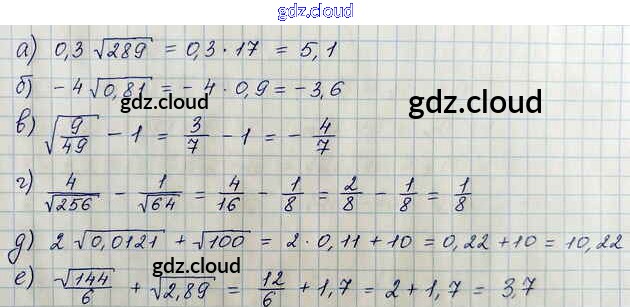 gdz.cloud
а) 0,3 √289 = 0,3 · 17 = 5,1
б) -4 √0,81 = -4 · 0,9 = -3,6
gdz.cloud
gdz.cloud
в) √(9/49) - 1 = 3/7 - 1 = - 4/7
г) 4/√256 - 1/√64 = 4/16 - 1/8 = 2/8 - 1/8 = 1/8
д) 2 √0,0121 + √100 = 2 · 0,11 + 10 = 0,22 + 10 = 10,22
е) √144/6 + √2,89 = 12/6 + 1,7 = 2 + 1,7 = 3,7
gdz.cloud